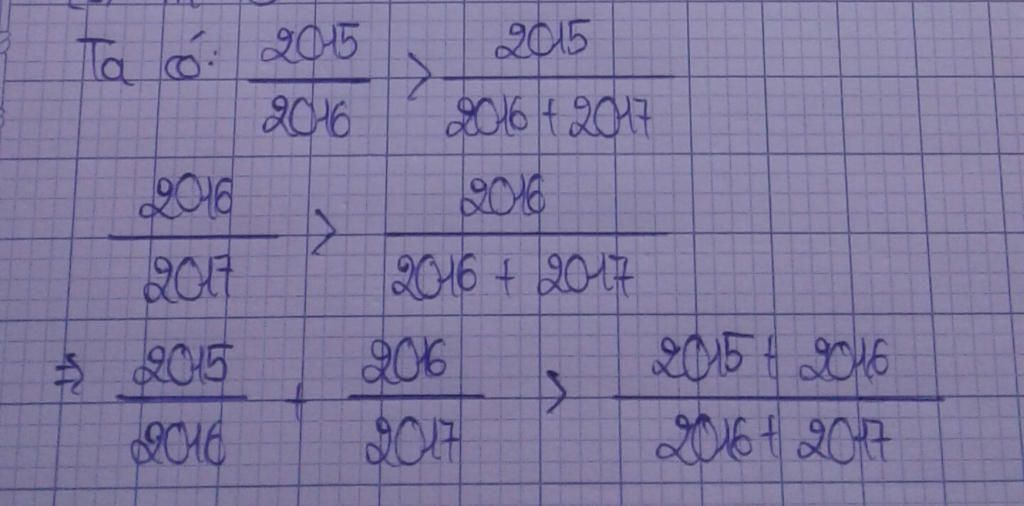 Ta có: 2015/2016 > 2015/(2016 + 2017)
2016/2017 > 2016/(2016 + 2017)
⇒ 2015/2016 + 2016/2017 > (2015 + 2016)/(2016 + 2017)